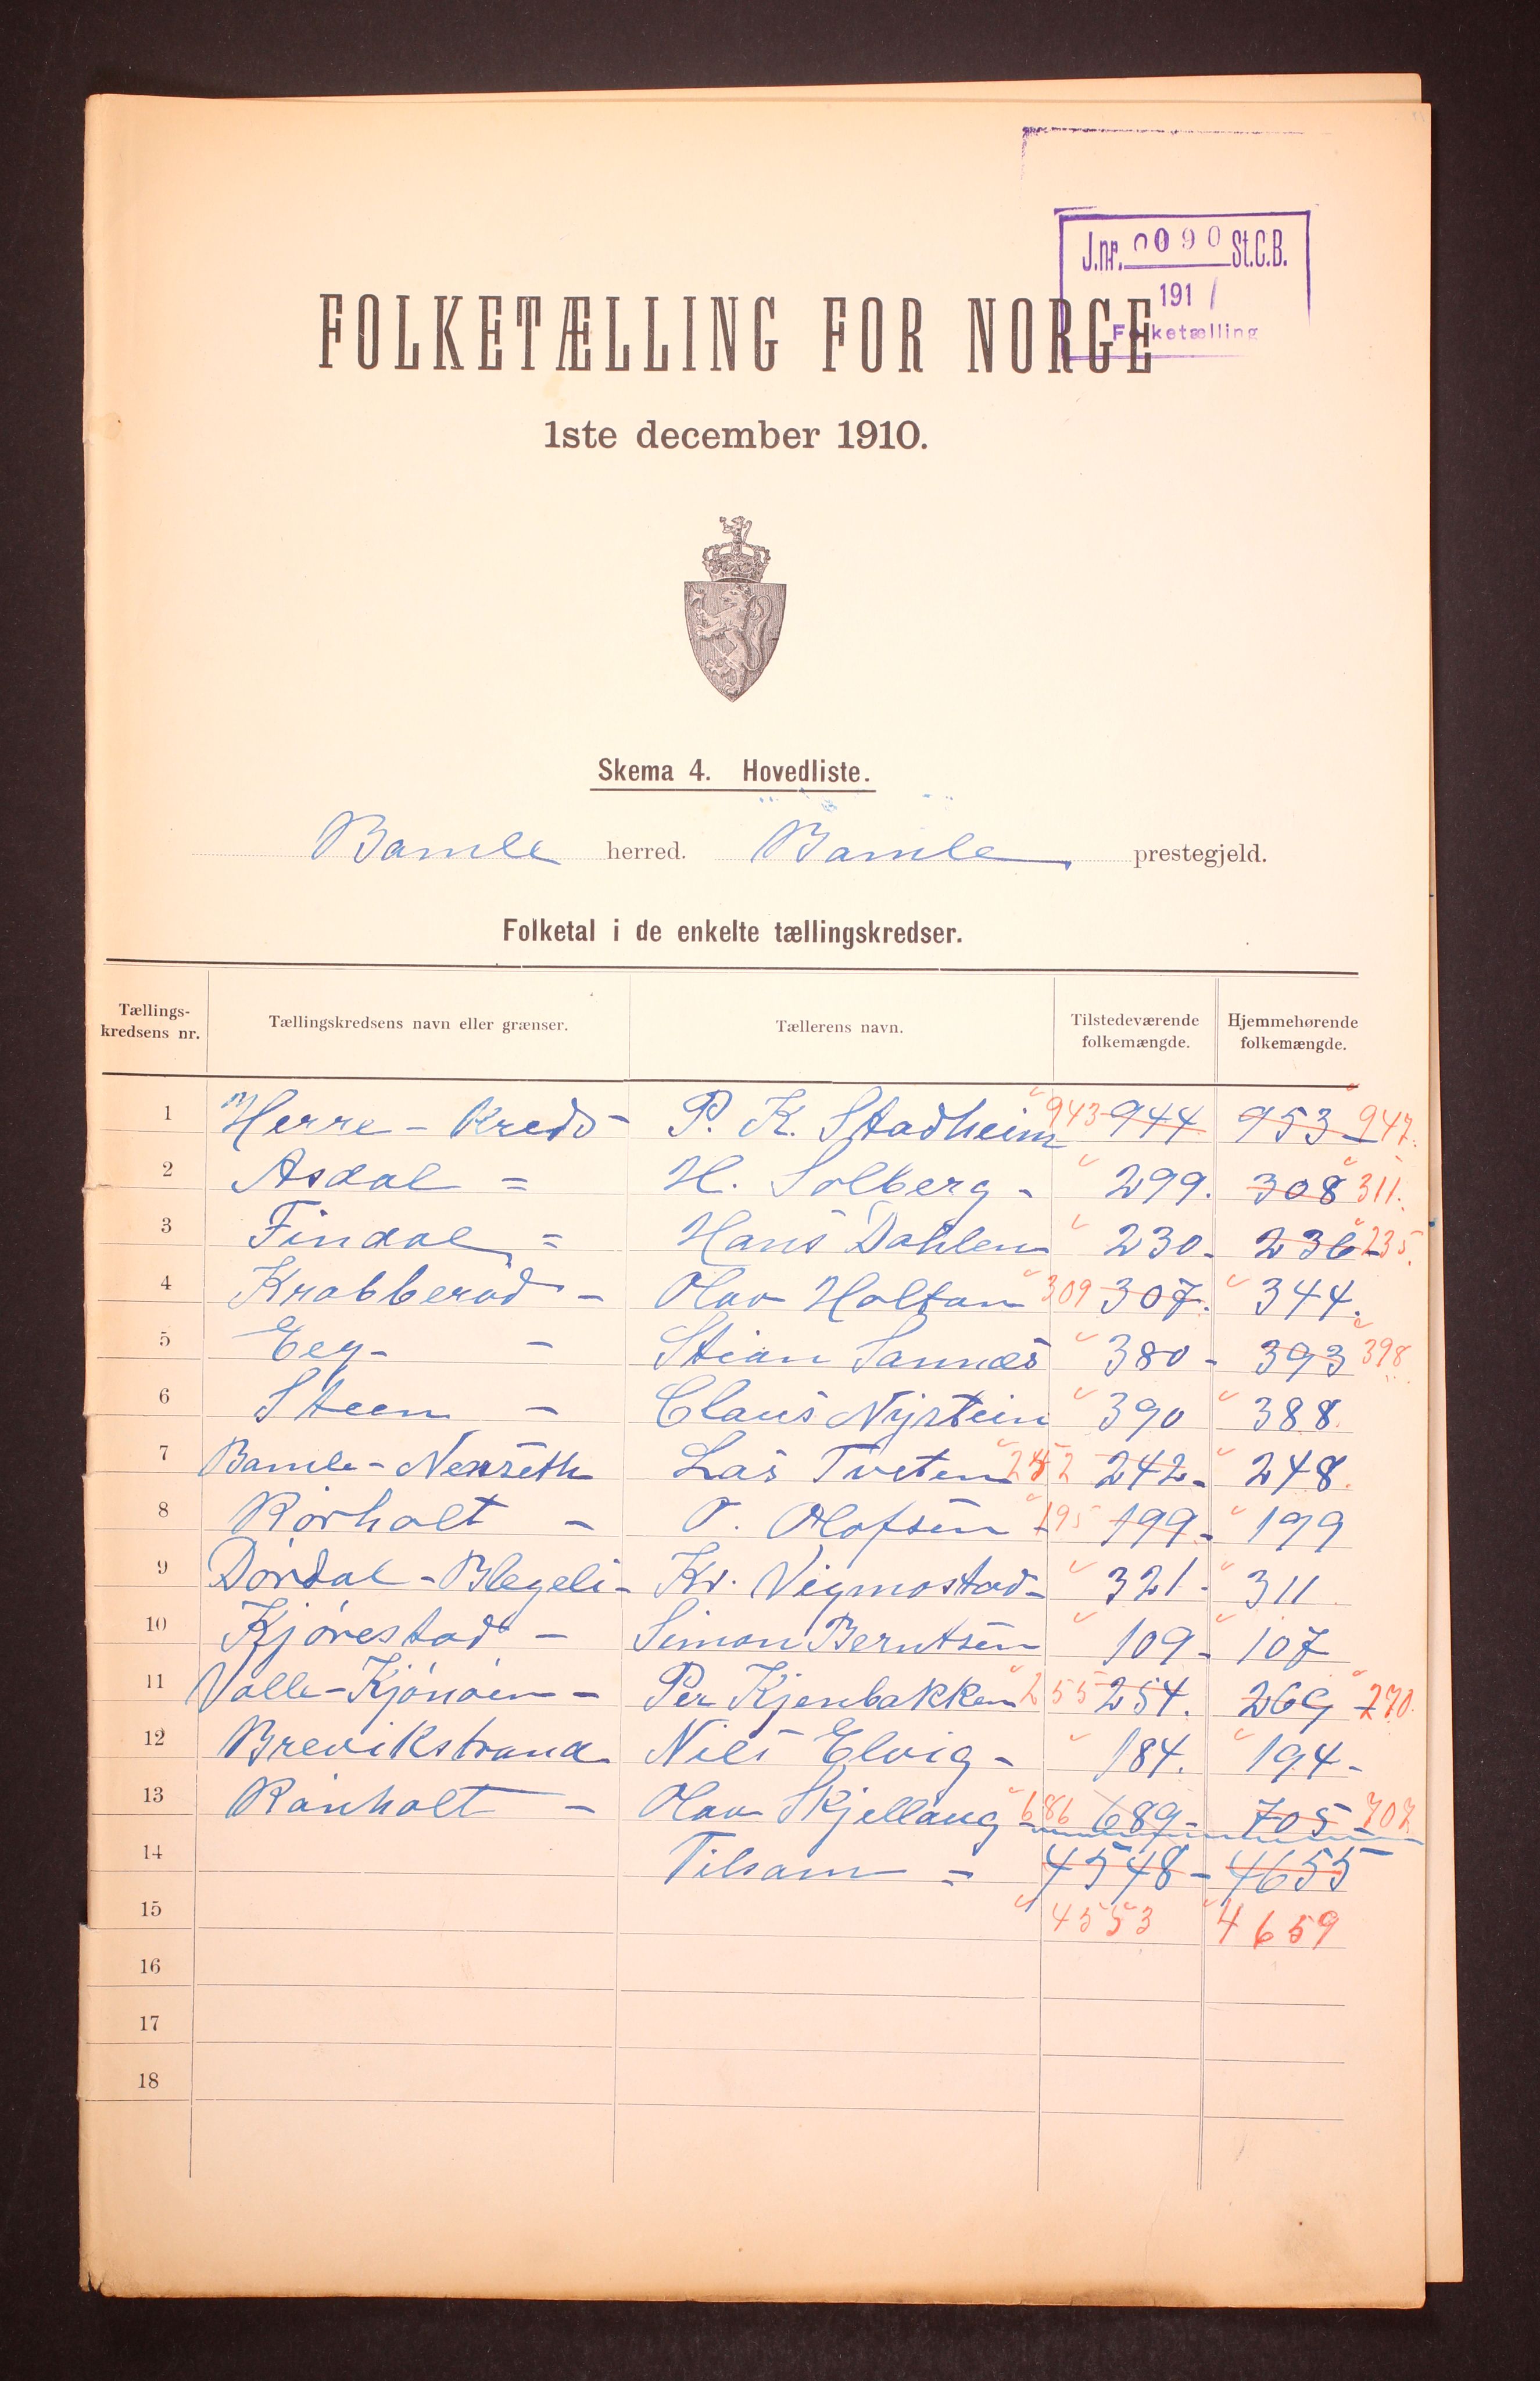 J.nr. 0090 St.C.B.
191 /
Folketælling
FOLKETÆLLING FOR NORGE
1ste december 1910.
Skema 4. Hovedliste.
Bamle herred. Bamle prestegjeld.
Folketal i de enkelte tællingskredser.
Tællings-kredsens nr. Tællingskredsens navn eller grænser. Tællerens navn. Tilstedeværende folkemængde. Hjemmehørende folkemængde.
1 Herre - Kreds - P. K. Stadheim 943 944 953 - 947.
2 Asdal = H. Solberg - 299. 308 311.
3 Findal = Hans Dahlen 230 - 236 - 235.
4 Krabberød - Olav Holtan 309 307. 344.
5 Eeg - - Stian Sannes 380 - 393 398
6 Steen - Claus Nystein 390 388.
7 Bamle - Nenseth Las Tveten 242 - 248.
8 Rørholt - O. Olofsen - 195 199 - 199
9 Dørdal - Blegeli - Kr. Vigmostad - 321 - 311
10 Kjørestad - Simon Berntsen 109 - 107
11 Valle - Kjønøen - Per Kjenbakken 255 254. 269 - 270.
12 Brevikstrand Nils Elvig - 184. 194 -
13 Rønholt - Olav Skjellaug - 686 689 - 705 - 707
14 Tilsam = 4548 - 4655
15 4553 4659
16
17
18